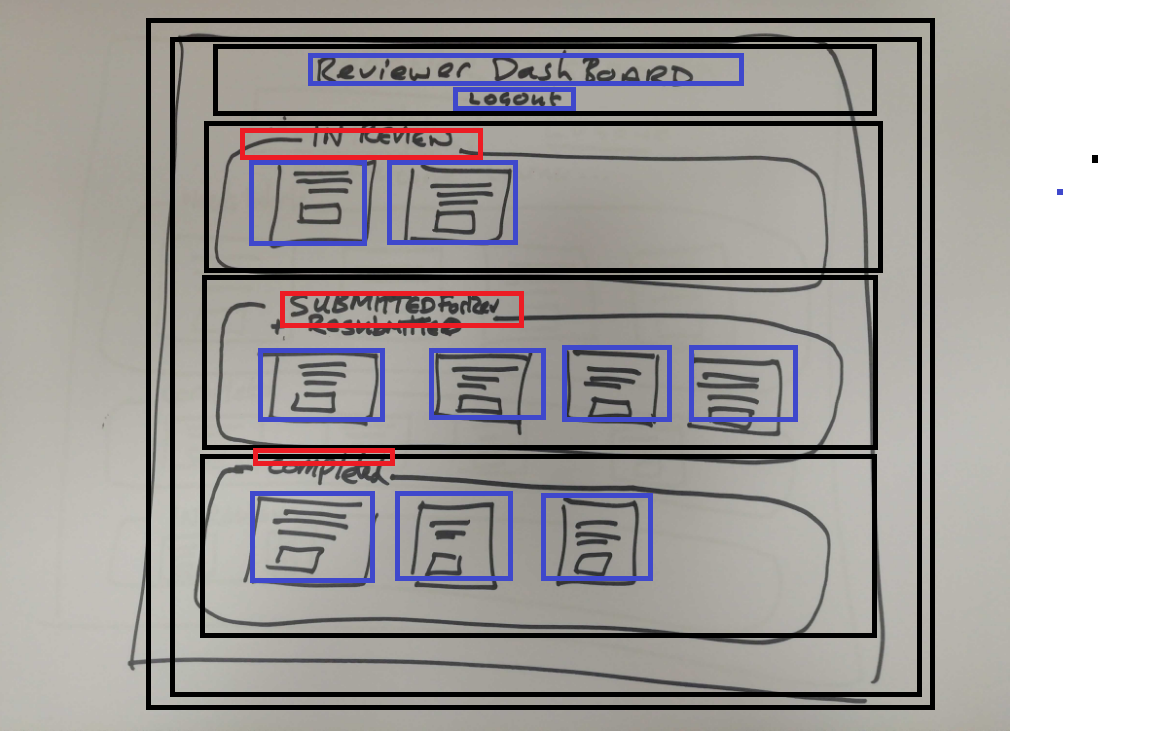 Reviewer DashBOARD
LOGOUT
IN REVIEW
SUBMITTED ForRev
+ RESUBMITTED
Completed